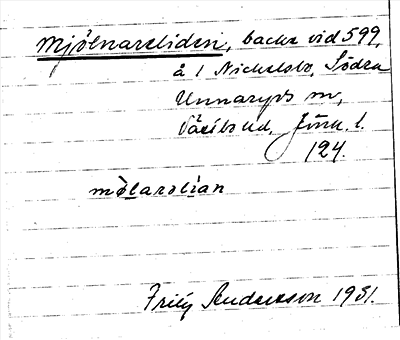 Mjölnareliden, backe vid 599,
å 1 Nickelsbo, Södra
Unnaryds sn,
Västbo hd, Jönk. l.
124.
mòlarəlian
Frity Andersson 1931.